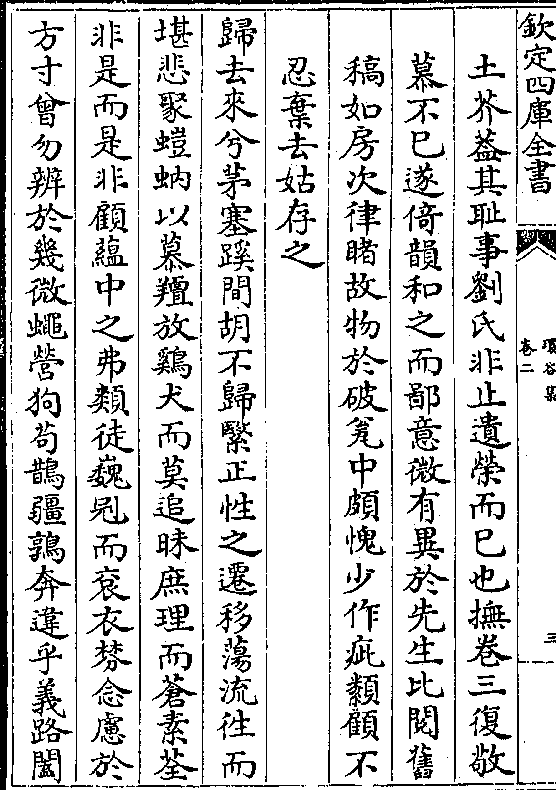 欽定四庫全書
環谷集
卷二
三
土芥蓋其耻事劉氏非止遺榮而已也撫卷三復敬
慕不已遂倚韻和之而鄙意微有異於先生比閱舊
稿如房次律睹故物於破瓮中頗愧少作疵纇顧不
忍棄去姑存之
歸去來兮茅塞蹊間胡不歸繄正性之遷移蕩流徃而
堪悲聚螘蚋以慕羶放鷄犬而莫追昧庶理而蒼素荃
非是而是非顧蘊中之弗類徒巍冠而衮衣棼念慮於
方寸曾勿辨於幾微蠅營狗苟鵲疆鶉奔違乎義路闔